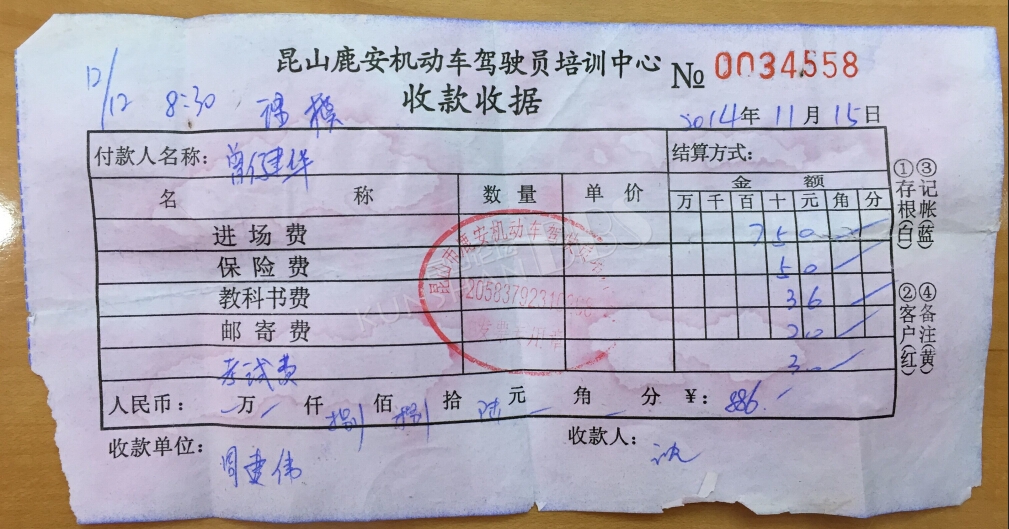 昆山鹿安机动车驾驶员培训中心 № 0034558
12/12 8:30
收款收据
2014年11月15日
付款人名称：曾健华 结算方式：
名 称 数量 单价 金额
万 千 百 十 元 角 分
进场费 750
保险费 50
教科书费 36
邮寄费 20
考试费 30
人民币： 万 仟 捌 佰 捌 拾 陆 元 角 分 ¥：886
收款单位： 收款人：沈
周建伟
①存根(白) ③记帐(蓝)
②客户(红) ④备注(黄)
KUNSHAN